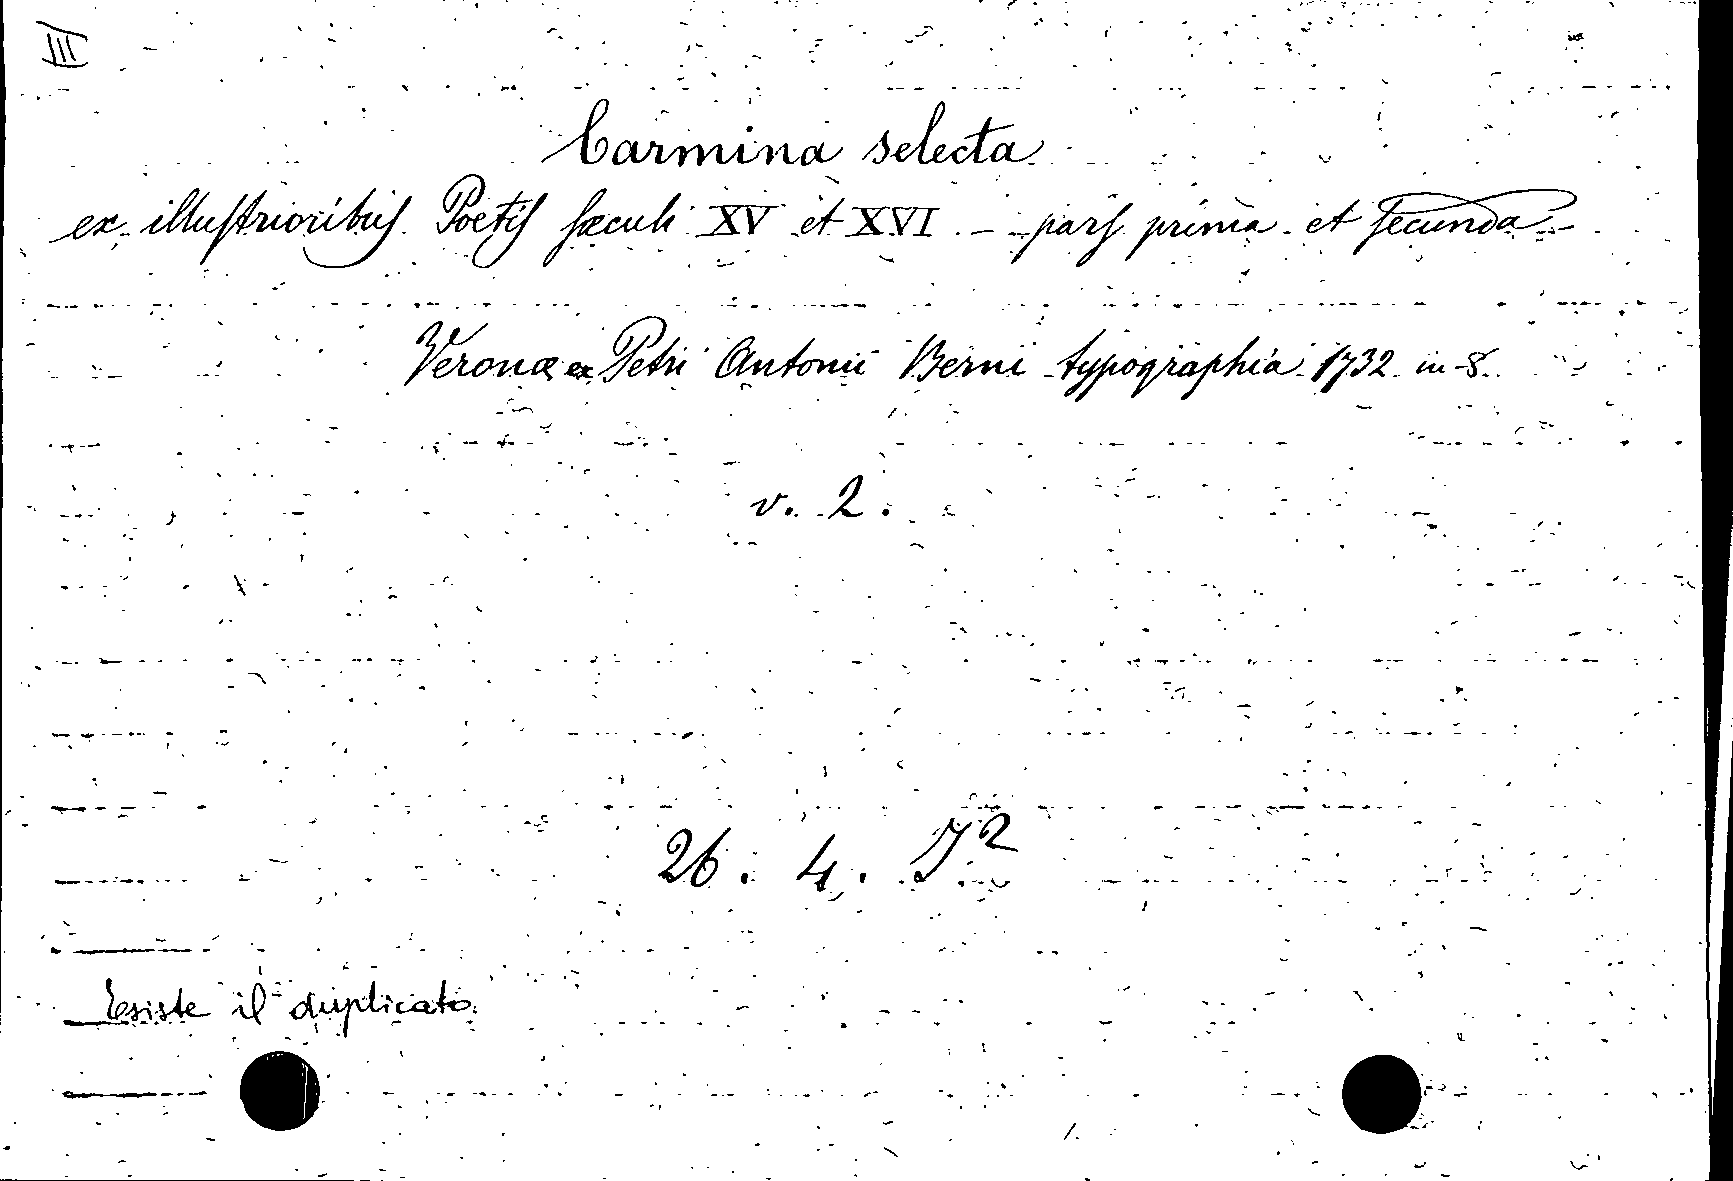 III
Carmina selecta
ex illustrioribus Poetis sæculi XV et XVI - pars prima et secunda
Veronæ ex Petri Antonii Berni typographia 1732 in-8.
v. 2.
26. 4. J²
Esiste il duplicato